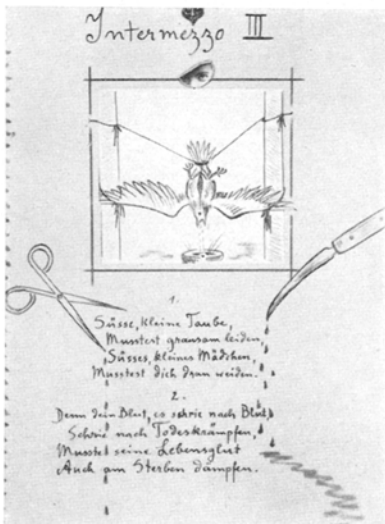 Intermezzo III
1.
Süsse, kleine Taube,
Musstest grausam leiden,
Süsses, kleines Mädchen,
Musstest dich dran weiden.
2.
Denn dein Blut, es schrie nach Blut,
Schrie nach Todeskrämpfen,
Musstet seine Lebensglut
Auch am Sterben dämpfen.